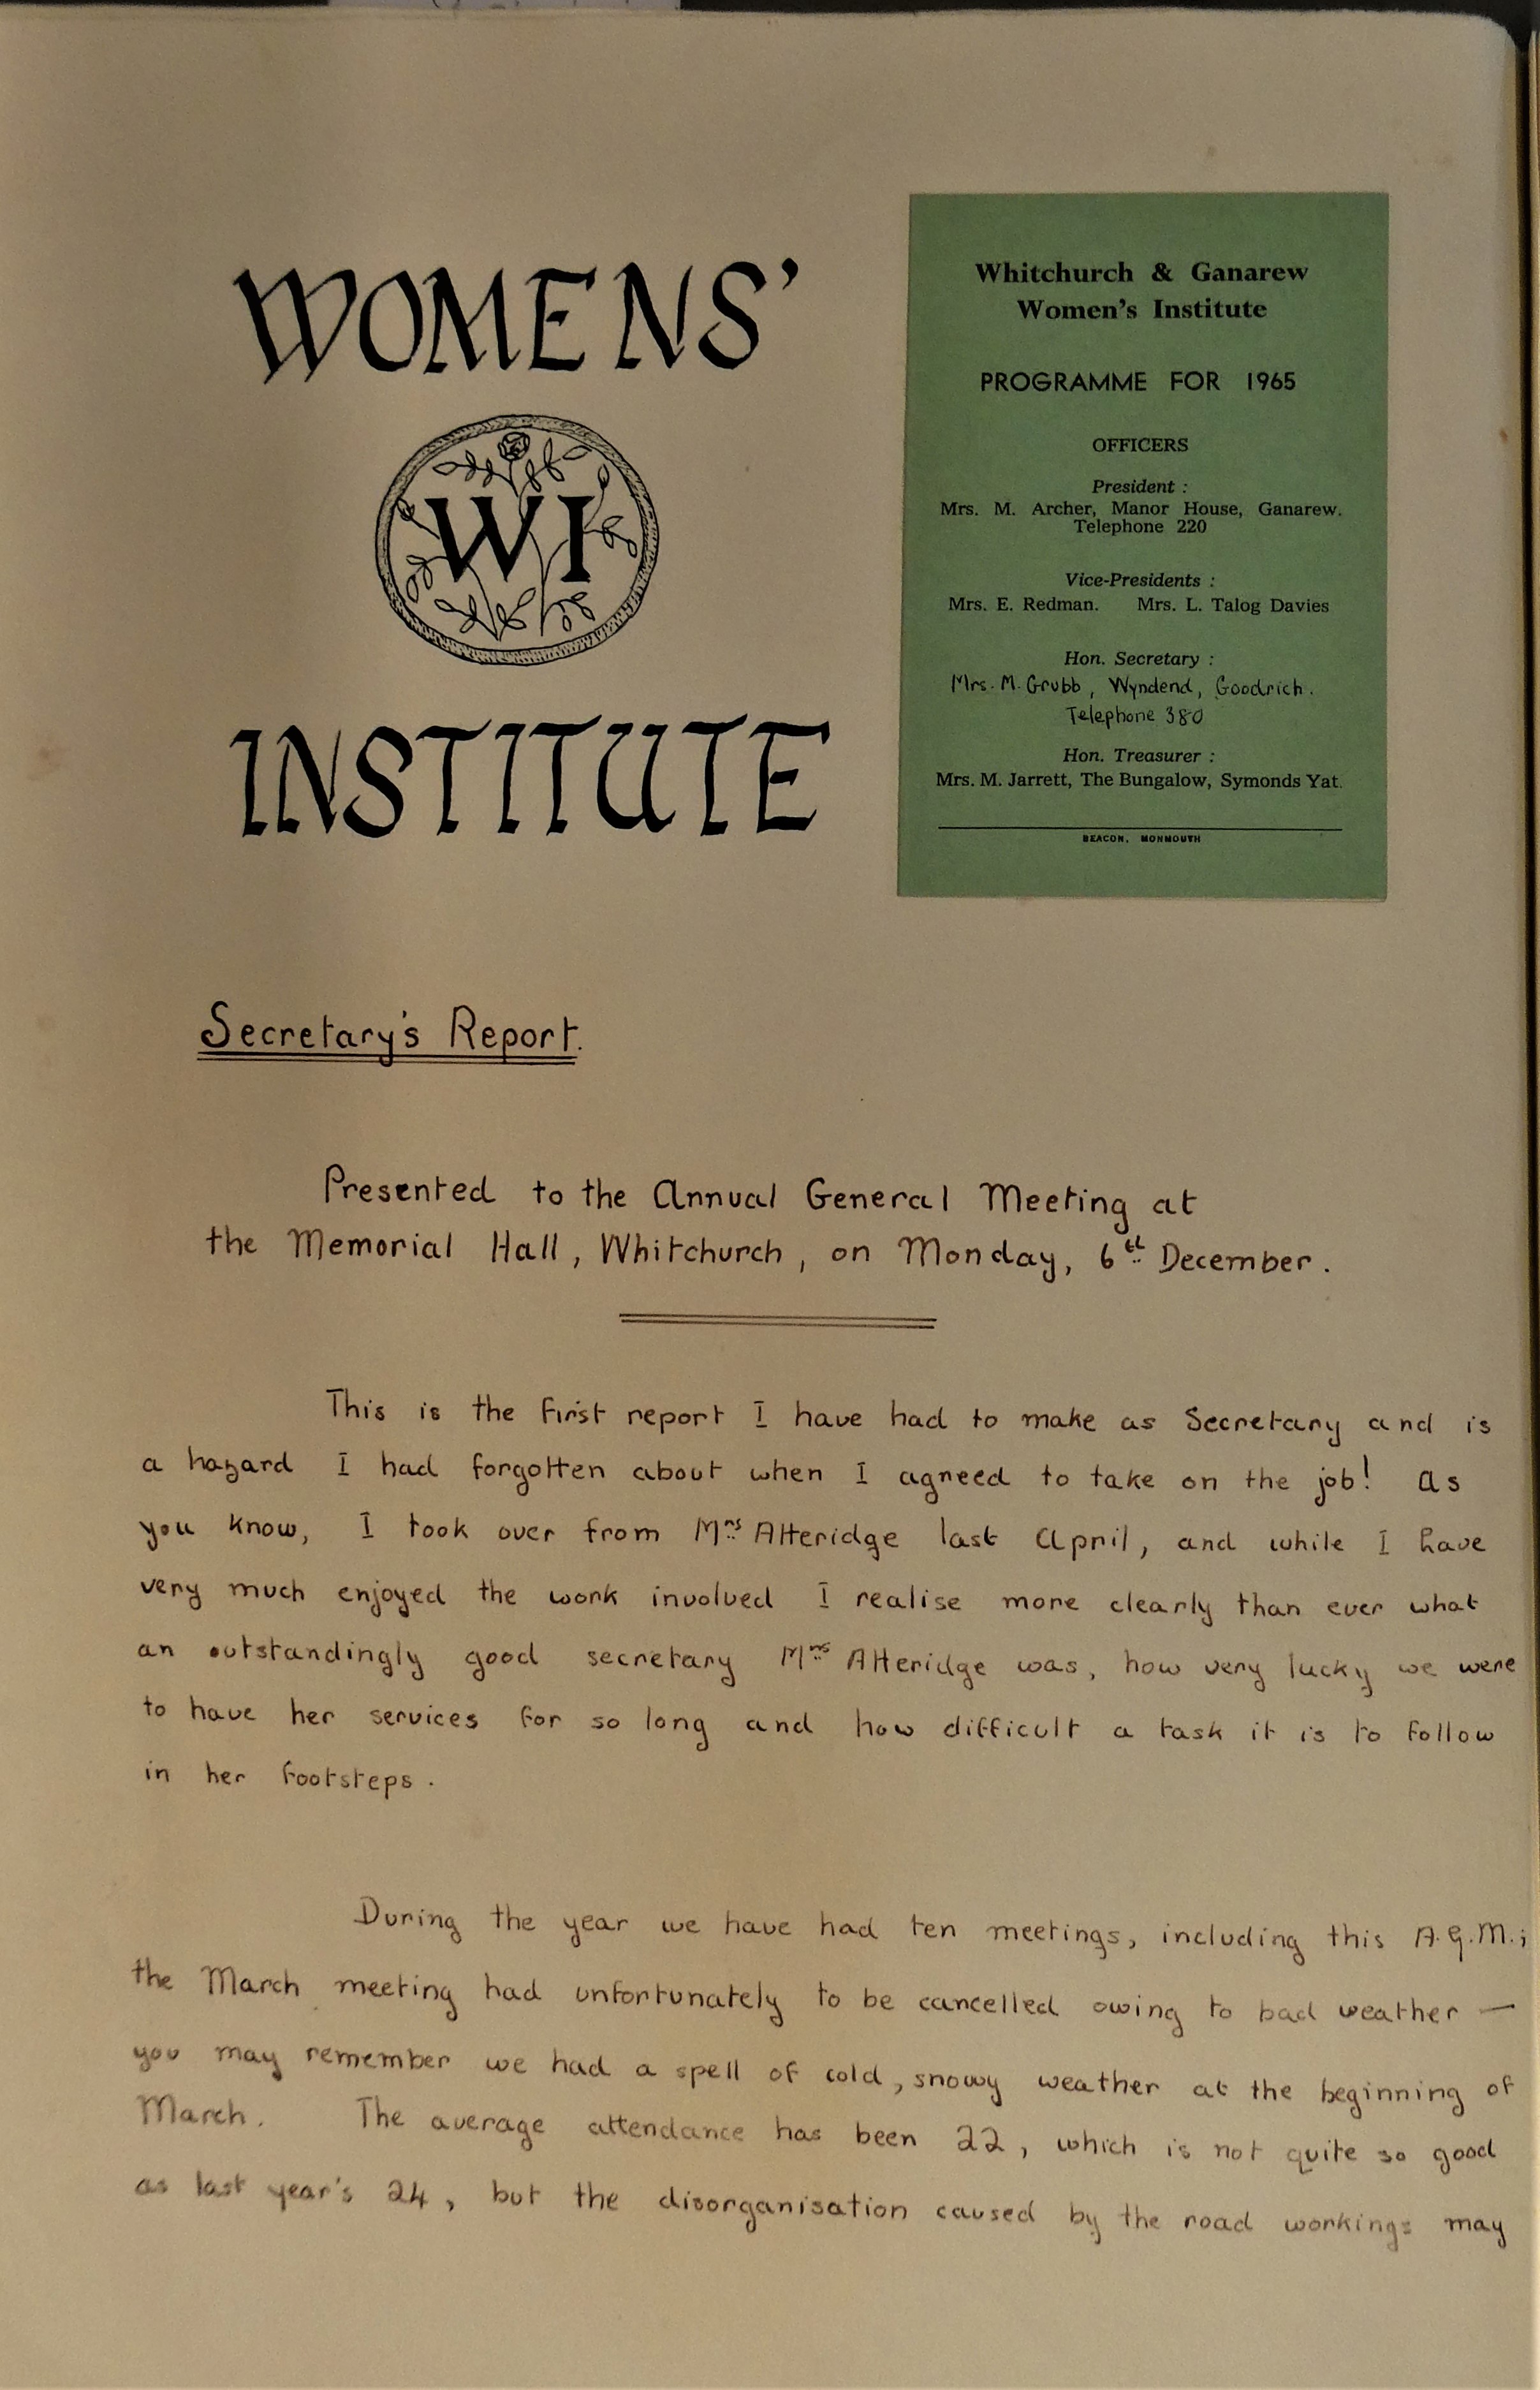 WOMENS'
WI
INSTITUTE
Whitchurch & Ganarew
Women's Institute
PROGRAMME FOR 1965
OFFICERS
President :
Mrs. M. Archer, Manor House, Ganarew.
Telephone 220
Vice-Presidents :
Mrs. E. Redman. Mrs. L. Talog Davies
Hon. Secretary :
Mrs. M. Grubb, Wyndend, Goodrich.
Telephone 380
Hon. Treasurer :
Mrs. M. Jarrett, The Bungalow, Symonds Yat.
BEACON, MONMOUTH
Secretary's Report.
Presented to the Annual General Meeting at
the Memorial Hall, Whitchurch, on Monday, 6th December.
This is the first report I have had to make as Secretary and is
a hazard I had forgotten about when I agreed to take on the job! As
you know, I took over from Mrs Atteridge last April, and while I have
very much enjoyed the work involved I realise more clearly than ever what
an outstandingly good secretary Mrs Atteridge was, how very lucky we were
to have her services for so long and how difficult a task it is to follow
in her footsteps.
During the year we have had ten meetings, including this A.G.M.;
the March meeting had unfortunately to be cancelled owing to bad weather —
you may remember we had a spell of cold, snowy weather at the beginning of
March. The average attendance has been 22, which is not quite so good
as last year's 24, but the disorganisation caused by the road workings may